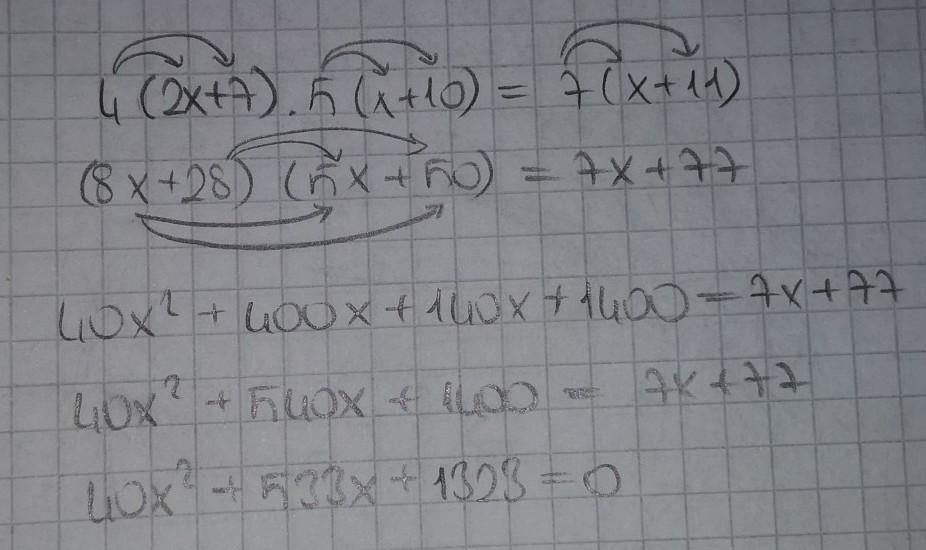 4(2x+7).5(x+10) = 7(x+11)
(8x+28) (5x+50) = 7x+77
40x² + 400x + 140x + 1400 = 7x+77
40x² + 540x + 1400 = 7x+77
40x² + 533x + 1323 = 0